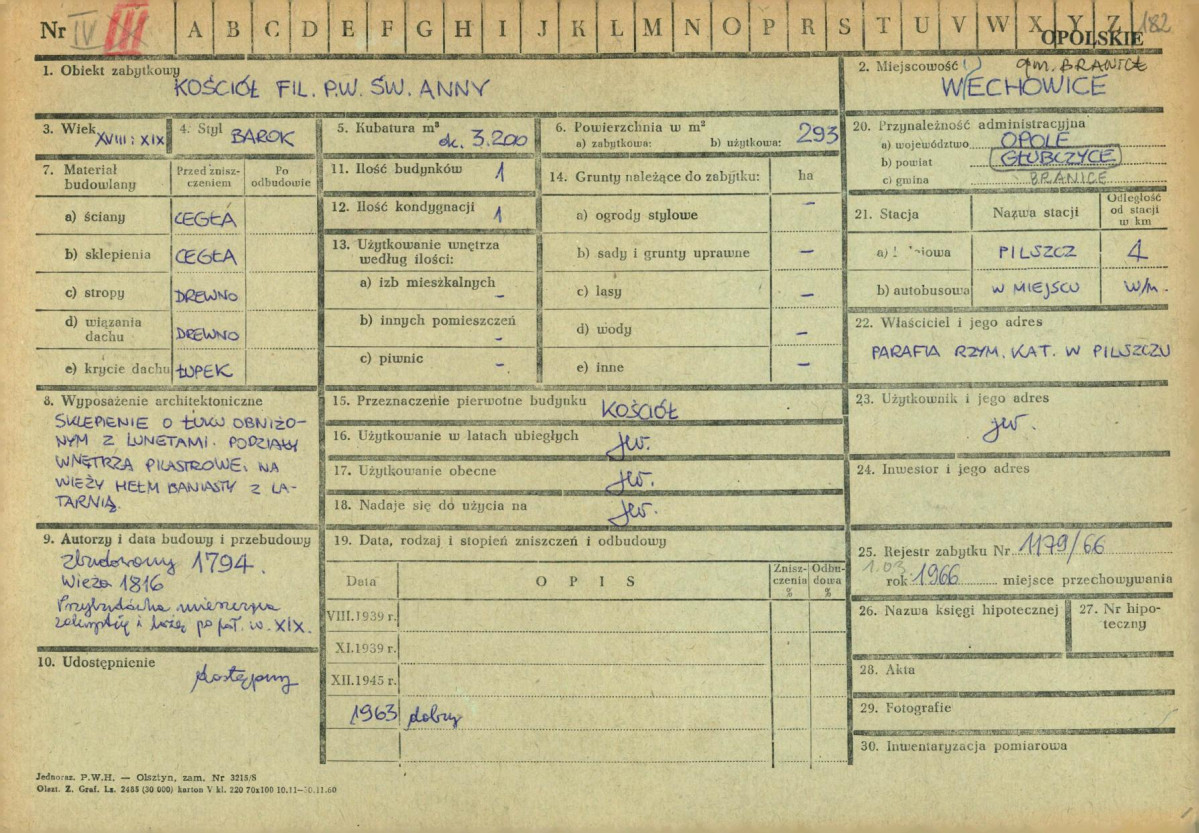 Nr IV III A B C D E F G H I J K L M N O P R S T U V W X Y Z 182
OPOLSKIE
1. Obiekt zabytkowy
KOŚCIÓŁ FIL. P.W. ŚW. ANNY
2. Miejscowość gm. BRANICE
WIECHOWICE
3. Wiek XVIII : XIX
4. Styl BAROK
5. Kubatura m³ ok. 3.200
6. Powierzchnia w m²
a) zabytkowa: b) użytkowa: 293
7. Materiał budowlany
Przed zniszczeniem
Po odbudowie
a) ściany CEGŁA
b) sklepienia CEGŁA
c) stropy DREWNO
d) wiązania dachu DREWNO
e) krycie dachu ŁUPEK
8. Wyposażenie architektoniczne
SKLEPIENIE O ŁUKU OBNIŻO-
NYM Z LUNETAMI. PODZIAŁY
WNĘTRZA PILASTROWE. NA
WIEŻY HEŁM BANIASTY Z LA-
TARNIĄ.
9. Autorzy i data budowy i przebudowy
Zbudowany 1794.
Wieża 1816
Przybudówka mieszcząca
zakrystię i lożę po poł. w. XIX.
10. Udostępnienie
dostępny
11. Ilość budynków 1
12. Ilość kondygnacji 1
13. Użytkowanie wnętrza
według ilości:
a) izb mieszkalnych –
b) innych pomieszczeń –
c) piwnic –
14. Grunty należące do zabytku: ha
a) ogrody stylowe –
b) sady i grunty uprawne –
c) lasy –
d) wody –
e) inne –
15. Przeznaczenie pierwotne budynku KOŚCIÓŁ
16. Użytkowanie w latach ubiegłych jw.
17. Użytkowanie obecne jw.
18. Nadaje się do użycia na jw.
19. Data, rodzaj i stopień zniszczeń i odbudowy
Data
O P I S
Zniszczenia %
Odbudowa %
VIII.1939 r.
XI.1939 r.
XII.1945 r.
1963 dobry
20. Przynależność administracyjna
a) województwo OPOLE
b) powiat GŁUBCZYCE
c) gmina BRANICE
21. Stacja
Nazwa stacji
Odległość
od stacji
w km
a) iowa PILSZCZ 4
b) autobusowa W MIEJSCU w/m.
22. Właściciel i jego adres
PARAFIA RZYM. KAT. W PILSZCZU
23. Użytkownik i jego adres
jw.
24. Inwestor i jego adres
25. Rejestr zabytku Nr 1179/66
1.03
rok 1966 miejsce przechowywania
26. Nazwa księgi hipotecznej
27. Nr hipo-
teczny
28. Akta
29. Fotografie
30. Inwentaryzacja pomiarowa
Jednoraz. P.W.H. — Olsztyn, zam. Nr 3215/S
Olszt. Z. Graf. Lz. 2485 (30 000) karton V kl. 220 70x100 10.11—30.11.60